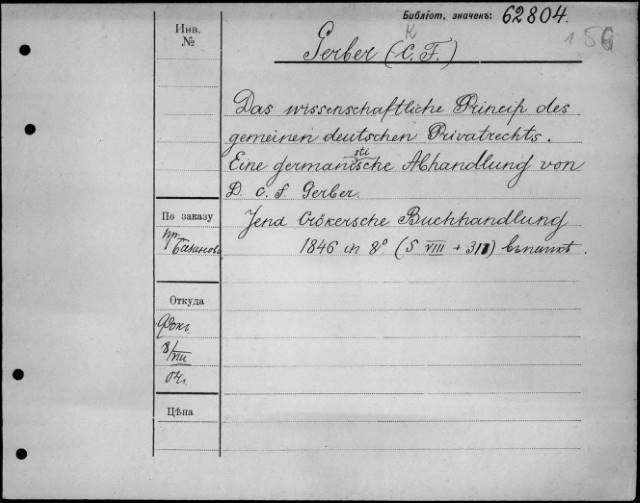 Библіот. значекъ: 62804.
156
Инв.
№
K
Gerber (C. F.)
Das wissenschaftliche Princip des
gemeinen deutschen Privatrechts.
sti
Eine germanische Abhandlung von
D. C. F. Gerber.
Jena Crökersche Buchhandlung
1846 in 8º (S VIII + 311)
По заказу
пр.
Откуда
Фокъ
8/VIII
04.
Цѣна